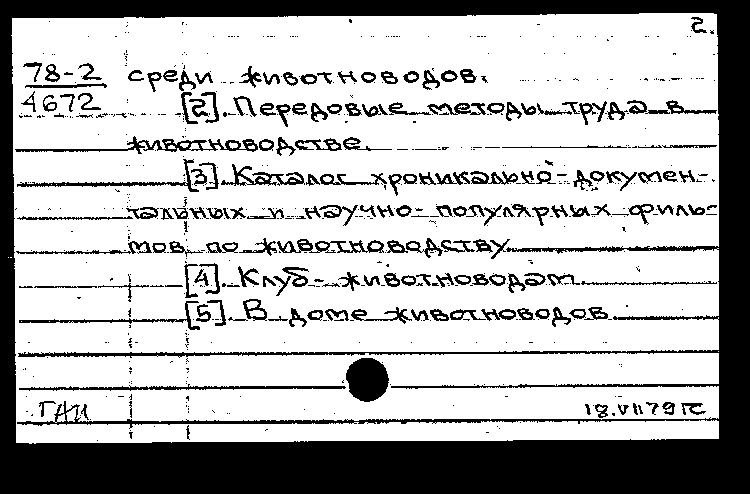 2.
78-2 среди животноводов.
4672 [2]. Передовые методы труда в
животноводстве.
[3]. Каталог хроникально-докумен-
тальных и научно-популярных филь-
мов по животноводству.
[4]. Клуб - животноводам.
[5]. В доме животноводов.
ГАИ 18.VII 79 ГС